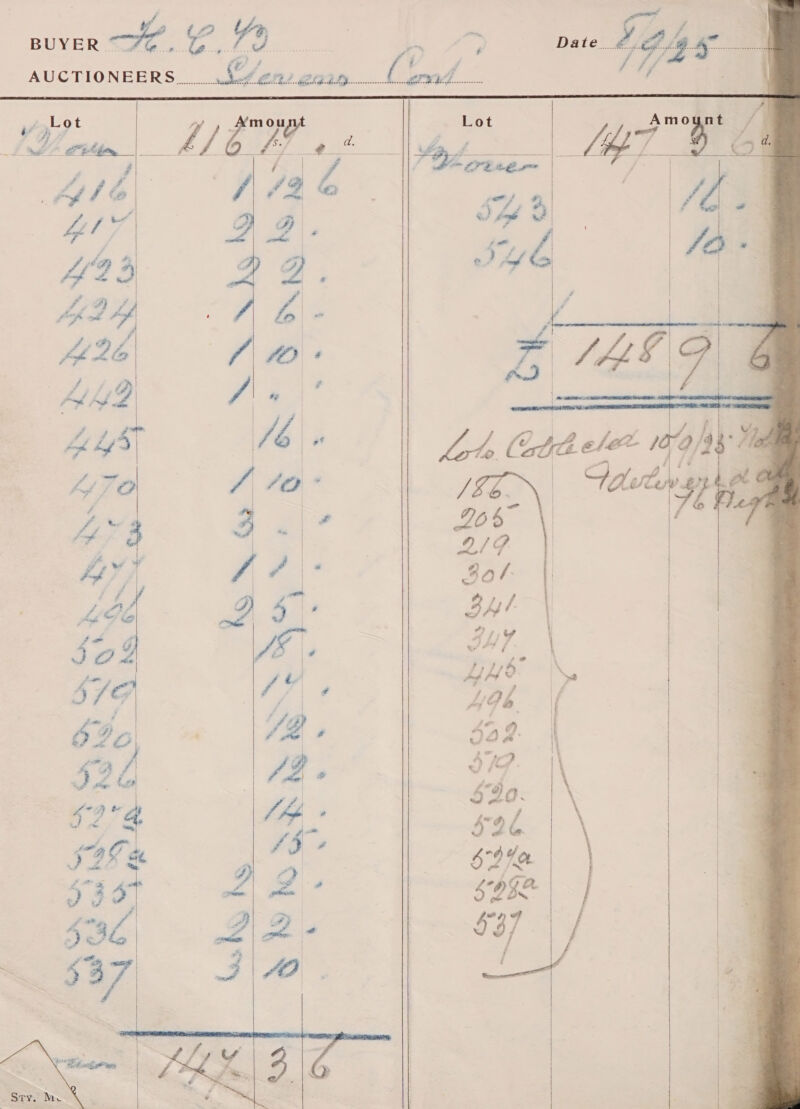 BUYER H. C. 43 Date 8/9/25
AUCTIONEERS Stevens Cont
Lot Amount
£ s. d.
B/ Over 116 17 .
416 1 12 6
417 2 2 .
423 2 2 .
424 1 6 -
426 1 10 .
442 1 . .
445 16 .
470 1 10 .
473 3 - .
477 1 1 .
496 2 5 .
502 18 .
519 17 .
520 12 .
526 12 .
527a 14 .
528a 15 .
535 2 2 .
536 2 2 .
537 3 10 .
147 3 6
STY.
Lot Amount
£ s. d.
B/ over 147 3 6
543 16 .
546 10 .
£ 148 9 6
Lots Collected 10/9/25
& delivered at
76
186.
205
219
301
341
347
445
496
502
519
520.
526
527a
528a
537